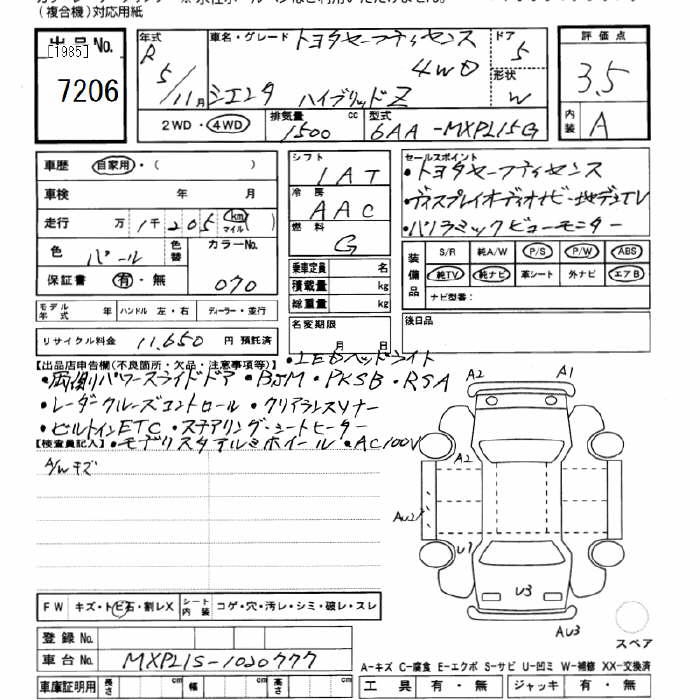 (複合機)対応用紙
出品No.
[1985]
7206
年式 R5/11月
車名・グレード トヨタセーフティセンス
4WD
シエンタ ハイブリッドZ
ドア 5
形状 W
評価点
3.5
内装 A
2WD・4WD 排気量 1500 cc 型式 6AA-MXPL15G
車歴 自家用・( )
車検 年 月
走行 万1千205 km マイル( )
色 パール 色替 カラーNo. 070
保証書 有・無
モデル年式 年 ハンドル 左・右 ディーラー・並行
リサイクル料金 11,650 円 預託済
シフト 1AT
冷房 AAC
燃料 G
乗車定員 名
積載量 kg
総重量 kg
名変期限 月 日
セールスポイント
・トヨタセーフティセンス
・ディスプレイオーディオナビ・地デジTV
・パノラミックビューモニター
装備品 S/R 純A/W P/S P/W ABS
純TV 純ナビ 革シート 外ナビ エアB
ナビ型番:
後日品
【出品店申告欄(不良箇所・欠品・注意事項等)】・LEDヘッドライト
・両側パワースライドドア・BSM・PKSB・RSA
・レーダークルーズコントロール・クリアランスソナー
・ビルトインETC・ステアリング・シートヒーター
【検査員記入】・モデリスタアルミホイール・AC100V
A/Wキズ
A2 A1
A2
AU2
U1
U3
AU3
スペア
FW キズ・トビ石・割レX シート内装 コゲ・穴・汚レ・シミ・破レ・スレ
登録No.
車台No. MXPL15-1020777
車庫証明用 長さ cm 幅 cm 高さ cm
A-キズ C-腐食 E-エクボ S-サビ U-凹ミ W-補修 XX-交換済
工具 有・無 ジャッキ 有・無